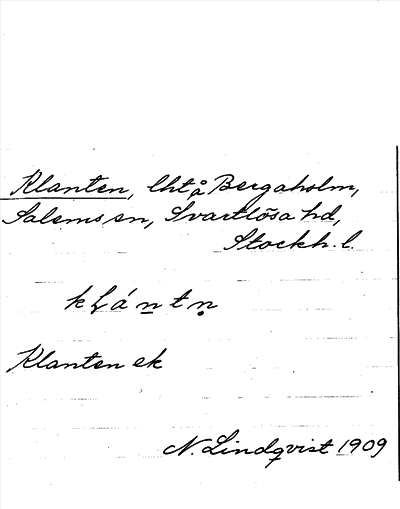 Klanten, lht å Bergaholm,
Salems sn, Svartlösa hd,
Stockh. l.
kḷántṇ
Klanten ek
N. Lindqvist 1909